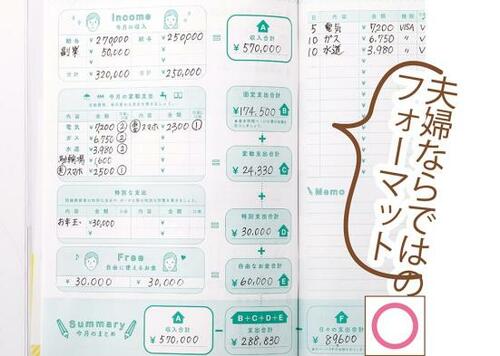 Income
今月の収入
給与 ¥270000 給与 ¥250,000
副業 ¥50,000
合計 ¥320,000 合計 ¥250,000
A
収入合計
¥570,000
=
今月の変動支出
内容 金額 内容 金額
電気 ¥7200 ② スマホ ¥2300 ①
ガス ¥6.750 ②
水道 ¥3.980 ②
駐輪場 ¥1600
スマホ ¥2500 ①
固定支出合計
¥174,500 B
+
変動支出合計
¥24,330 C
特別な支出
内容 金額 内容 金額
お年玉 ¥30,000
特別支出合計
¥30,000 D
+
Free
自由に使えるお金
¥30,000 ¥30,000
自由なお金合計
¥60,000 E
Summary
今月のまとめ
A
収入合計
¥570,000
B+C+D+E
支出合計
¥288,830
F
日々の支出合計
¥89600
日 内容 金額
5 電気 ¥7200 VISA V
10 ガス ¥6.750 〃 V
10 水道 ¥3.980 〃 V
Memo
夫婦ならではの
フォーマット